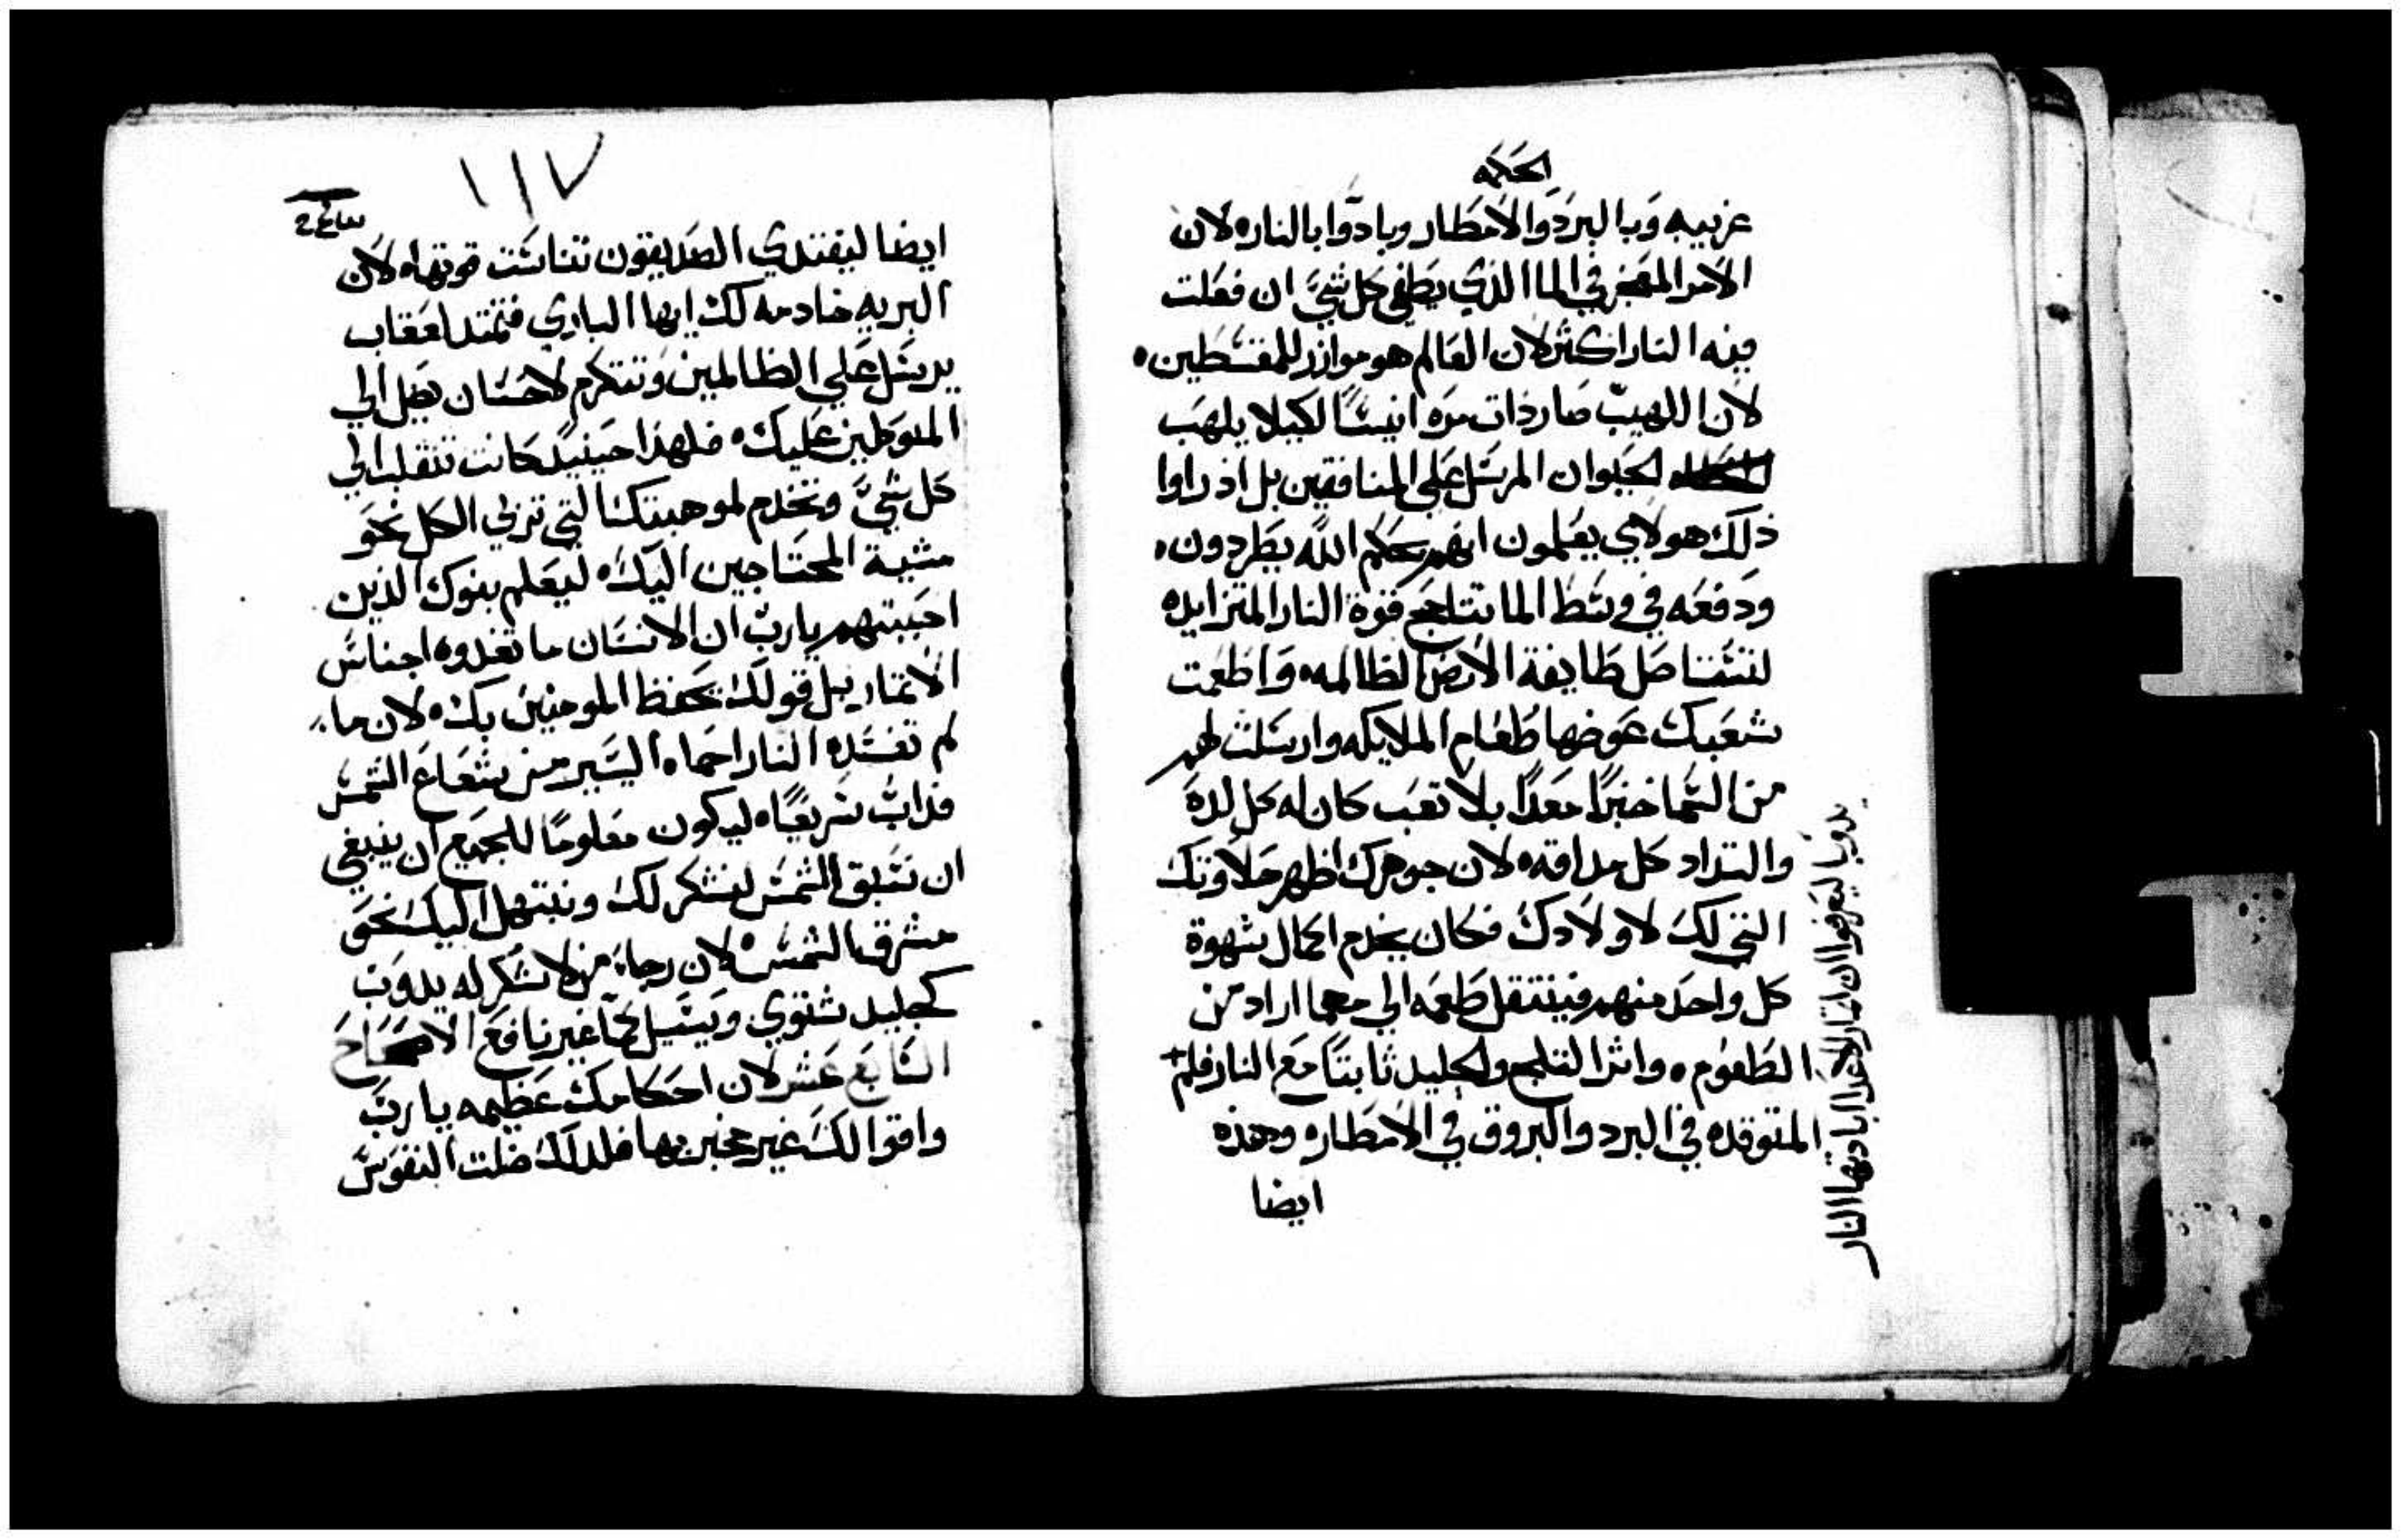 الحكمه
غريبه وبالبرد والامطار وبادوا بالناره لان
الامر المعجز في الما الذي يطفي كل شي ان فعلت
فيه النار اكثر لان العالم هو موازر للمقسطين ه
لان اللهيب صار ذات مره انيسًا لكيلا يلهب
الحيوان المرسل علي المنافقين بل اذ راوا
ذلك هولاي يعلمون انهم بحكم الله يطردون ه
ودفعه في وسط الما تتاجج قوة النار المتزايده
لتستاصل طايفة الارض الظالمه ه واطعمت
شعبك عوضها طعام الملايكه وارسلت لهم
من السما خبزًا معدًا بلا تعب كان له كل لده
والتداد كل مداقه ه لان جوهرك اظهر حلاوتك
التي لك لاولادك فكان يخدم اكمال شهوة
كل واحد منهم فينتقل طعمه الي مهما اراد من
الطعوم ه واثرا لتلج والجليد ثابتًا مع النار فلم +
المتوقده في البرد والبروق في الامطاره وهذه
ايضا
يدوبا ليعرفوا ان تمار الاعدا ابادتها النار
١١٧
ايضا ليفتدي الصديقون تناست قوتها ه لان
البريه خادمه لك ايها الباري فتمتد لعقاب
يرسل علي الظالمين وتتكرم لاحسان يصل الي
المتوكلين عليك ه فلهذا حينيد كانت تنقلب الي
كل شي وتخدم لموهبتك التي تربي الكل نحو
مشية المحتاجين اليك ه ليعلم بنوك الذين
احببتهم يارب ان الانسان ما تغدوه اجناس
الاتمار بل قولك تحفظ المومنين بك ه لان ما
لم تفسده النار احماه اليسير من شعاع الشمس
فداب سريعًا ه ليكون معلومًا للجميع ان ينبغي
ان نسبق الشمس لنشكر لك ونبتهل اليك نحو
مشرق الشمس ه لان رجا من لا شكر له يدوب
كجليد شتوي ويسيل كما غير نافع الاصحاح
السابع عشر لان احكامك عظيمه يا رب
واقوالك غير مخبر بها فلدلك ضلت النفوس